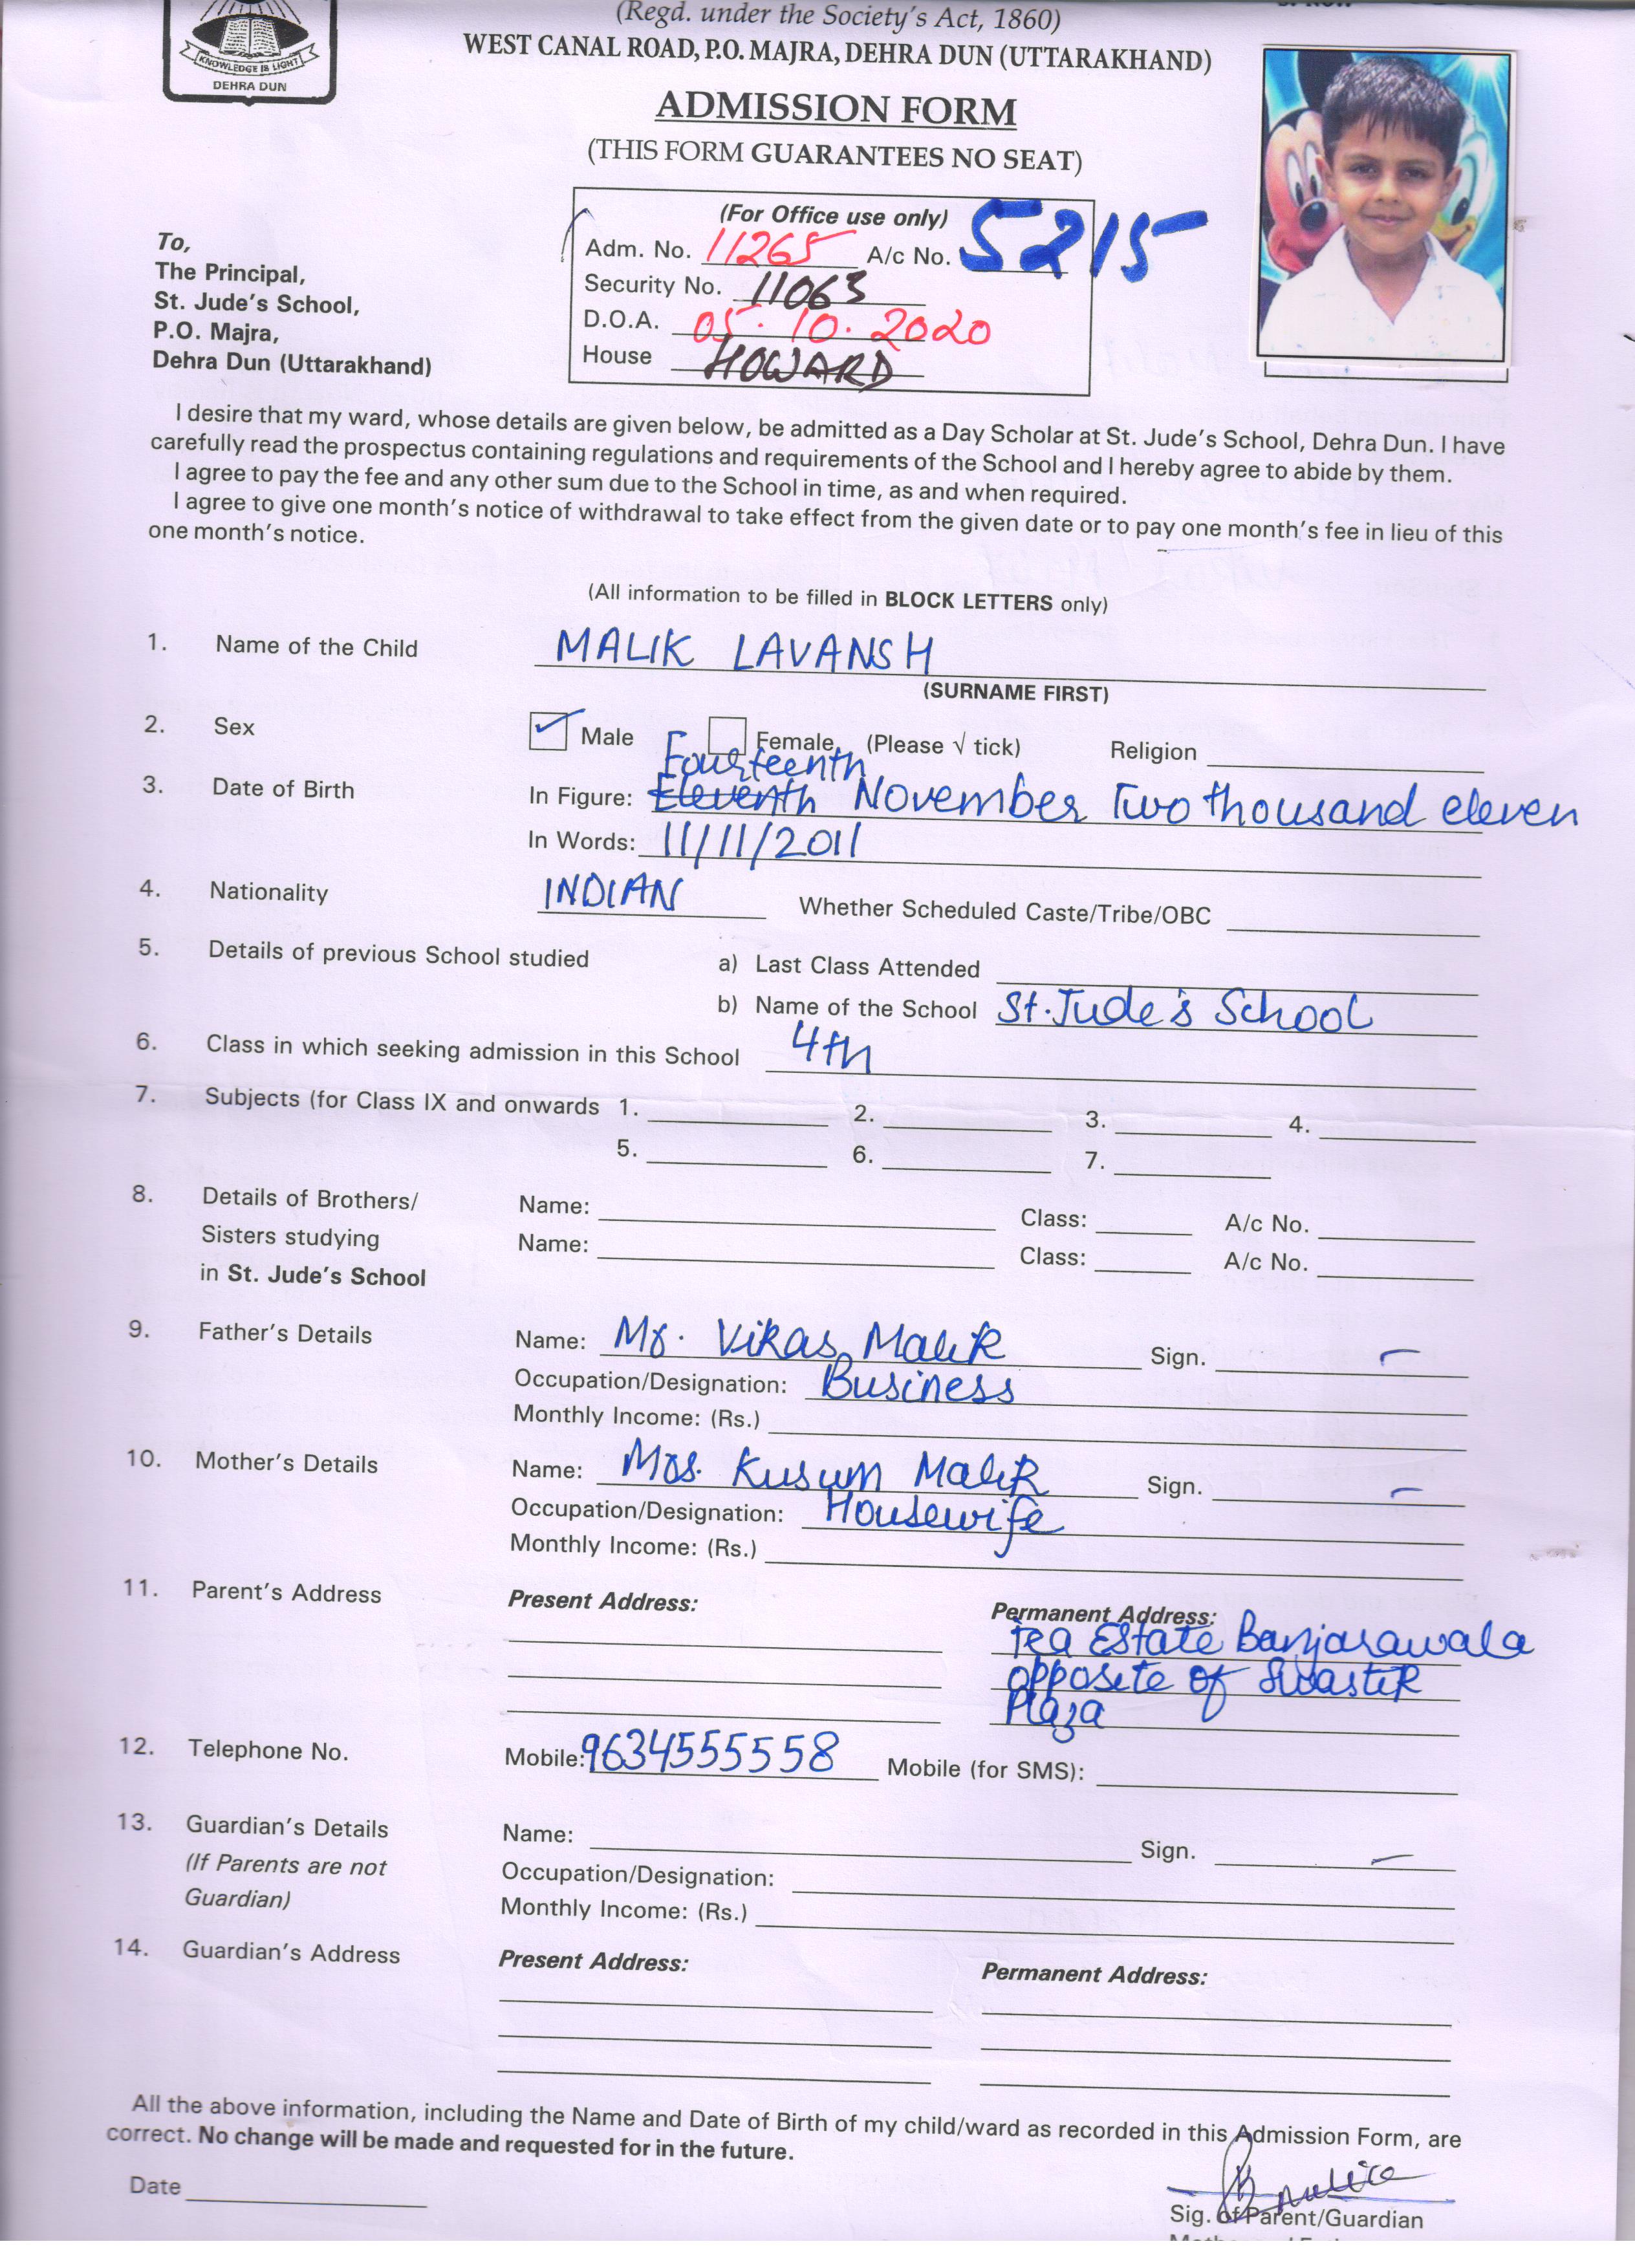 KNOWLEDGE IS LIGHT
DEHRA DUN
(Regd. under the Society's Act, 1860)
WEST CANAL ROAD, P.O. MAJRA, DEHRA DUN (UTTARAKHAND)
ADMISSION FORM
(THIS FORM GUARANTEES NO SEAT)
(For Office use only)
Adm. No. 11265 A/c No. 5215
Security No. 11063
D.O.A. 05.10.2020
House HOWARD
To,
The Principal,
St. Jude's School,
P.O. Majra,
Dehra Dun (Uttarakhand)
I desire that my ward, whose details are given below, be admitted as a Day Scholar at St. Jude's School, Dehra Dun. I have
carefully read the prospectus containing regulations and requirements of the School and I hereby agree to abide by them.
I agree to pay the fee and any other sum due to the School in time, as and when required.
I agree to give one month's notice of withdrawal to take effect from the given date or to pay one month's fee in lieu of this
one month's notice.
(All information to be filled in BLOCK LETTERS only)
1. Name of the Child MALIK LAVANSH
(SURNAME FIRST)
2. Sex Male Female (Please √ tick) Religion
Fourteenth
3. Date of Birth In Figure: Eleventh November Two thousand eleven
In Words: 11/11/2011
4. Nationality INDIAN Whether Scheduled Caste/Tribe/OBC
5. Details of previous School studied a) Last Class Attended
b) Name of the School St. Jude's School
6. Class in which seeking admission in this School 4th
7. Subjects (for Class IX and onwards 1. 2. 3. 4.
5. 6. 7.
8. Details of Brothers/ Name: Class: A/c No.
Sisters studying Name: Class: A/c No.
in St. Jude's School
9. Father's Details Name: Mr. Vikas Malik Sign.
Occupation/Designation: Business
Monthly Income: (Rs.)
10. Mother's Details Name: Mrs. Kusum Malik Sign.
Occupation/Designation: Housewife
Monthly Income: (Rs.)
11. Parent's Address Present Address: Permanent Address:
Tea Estate Banjarawala
opposite of Swastik
Plaza
12. Telephone No. Mobile: 9634555558 Mobile (for SMS):
13. Guardian's Details Name: Sign.
(If Parents are not Occupation/Designation:
Guardian) Monthly Income: (Rs.)
14. Guardian's Address Present Address: Permanent Address:
All the above information, including the Name and Date of Birth of my child/ward as recorded in this Admission Form, are
correct. No change will be made and requested for in the future.
Date
Sig. of Parent/Guardian